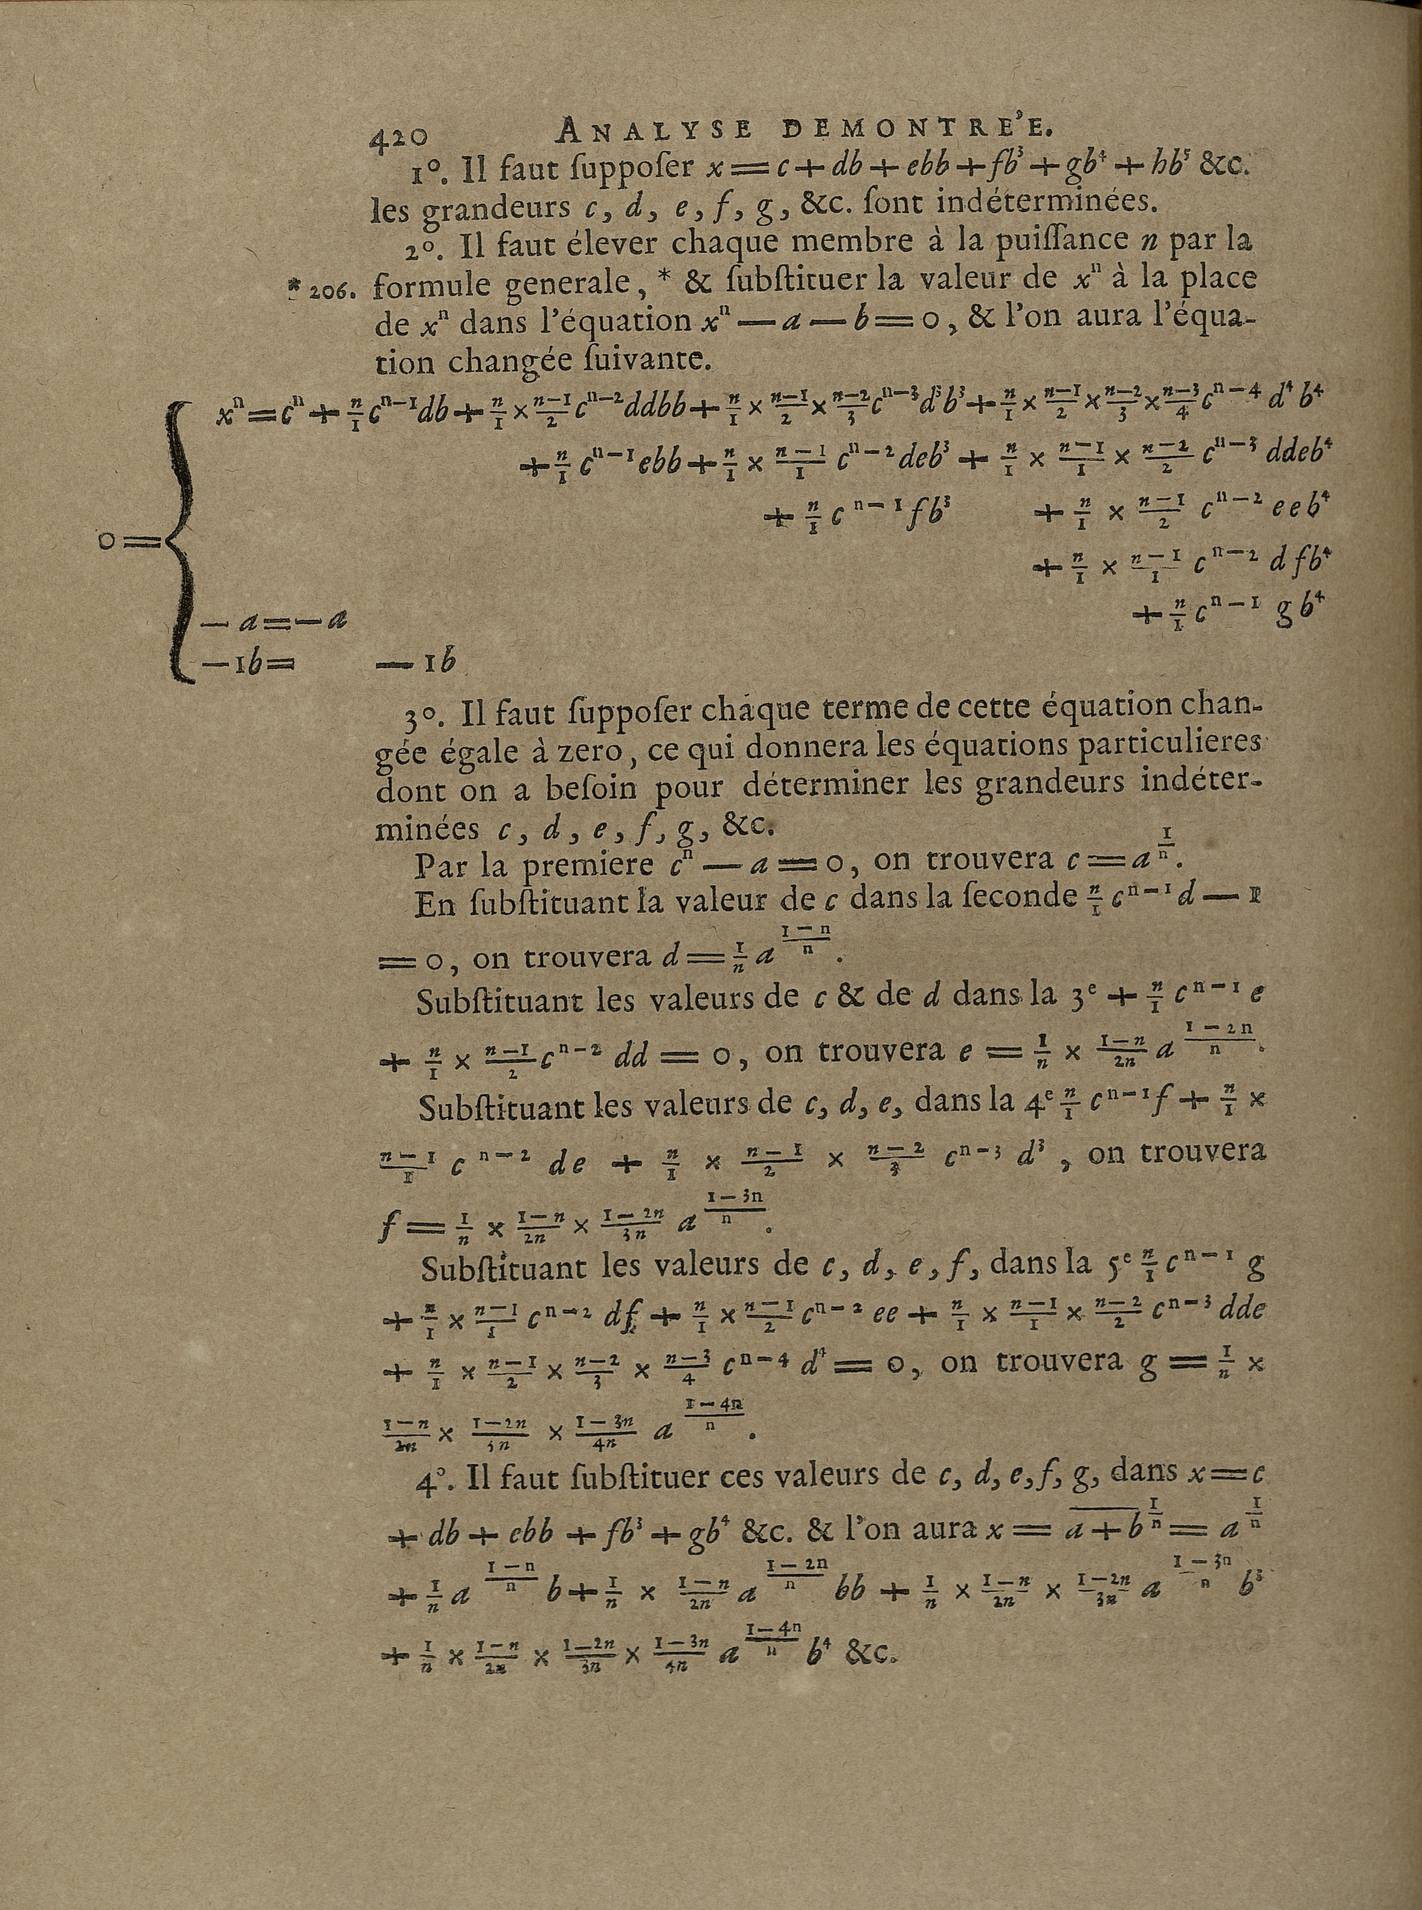 420 ANALYSE DEMONTRE'E.
1°. Il faut ſuppoſer x = c + db + ebb + fb³ + gb⁴ + hb⁵ &c.
les grandeurs c, d, e, f, g, &c. ſont indéterminées.
2°. Il faut élever chaque membre à la puiſſance n par la
* 206. formule generale, * & ſubſtituer la valeur de xⁿ à la place
de xⁿ dans l'équation xⁿ — a — b = 0, & l'on aura l'équa-
tion changée ſuivante.
xⁿ = cⁿ + n/1 cⁿ⁻¹db + n/1 × n—1/2 cⁿ⁻²ddbb + n/1 × n—1/2 × n—2/3 cⁿ⁻³d³b³ + n/1 × n—1/2 × n—2/3 × n—3/4 cⁿ⁻⁴ d⁴b⁴
+ n/1 cⁿ⁻¹ebb + n/1 × n—1/1 cⁿ⁻²deb³ + n/1 × n—1/1 × n—2/2 cⁿ⁻³ ddeb⁴
+ n/1 cⁿ⁻¹fb³ + n/1 × n—1/2 cⁿ⁻² eeb⁴
0 =
+ n/1 × n—1/1 cⁿ⁻² dfb⁴
+ n/1 cⁿ⁻¹ gb⁴
— a = — a
— 1b = — 1b
3°. Il faut ſuppoſer chaque terme de cette équation chan-
gée égale à zero, ce qui donnera les équations particulieres
dont on a beſoin pour déterminer les grandeurs indéter-
minées c, d, e, f, g, &c.
Par la premiere cⁿ — a = 0, on trouvera c = a^(1/n).
En ſubſtituant la valeur de c dans la ſeconde n/1 cⁿ⁻¹d — 1
= 0, on trouvera d = 1/n a^(1—n/n).
Subſtituant les valeurs de c & de d dans la 3ᵉ + n/1 cⁿ⁻¹ e
+ n/1 × n—1/2 cⁿ⁻² dd = 0, on trouvera e = 1/n × 1—n/2n a^(1—2n/n).
Subſtituant les valeurs de c, d, e, dans la 4ᵉ n/1 cⁿ⁻¹f + n/1 ×
n—1/1 cⁿ⁻² de + n/1 × n—1/2 × n—2/3 cⁿ⁻³ d³, on trouvera
f = 1/n × 1—n/2n × 1—2n/3n a^(1—3n/n).
Subſtituant les valeurs de c, d, e, f, dans la 5ᵉ n/1 cⁿ⁻¹ g
+ n/1 × n—1/1 cⁿ⁻² df + n/1 × n—1/2 cⁿ⁻² ee + n/1 × n—1/1 × n—2/2 cⁿ⁻³ dde
+ n/1 × n—1/2 × n—2/3 × n—3/4 cⁿ⁻⁴ d⁴ = 0, on trouvera g = 1/n ×
1—n/2n × 1—2n/3n × 1—3n/4n a^(1—4n/n).
4°. Il faut ſubſtituer ces valeurs de c, d, e, f, g, dans x = c
+ db + ebb + fb³ + gb⁴ &c. & l'on aura x = a + b^(1/n) = a^(1/n)
+ 1/n a^(1—n/n) b + 1/n × 1—n/2n a^(1—2n/n) bb + 1/n × 1—n/2n × 1—2n/3n a^(1—3n/n) b³
+ 1/n × 1—n/2n × 1—2n/3n × 1—3n/4n a^(1—4n/n) b⁴ &c.